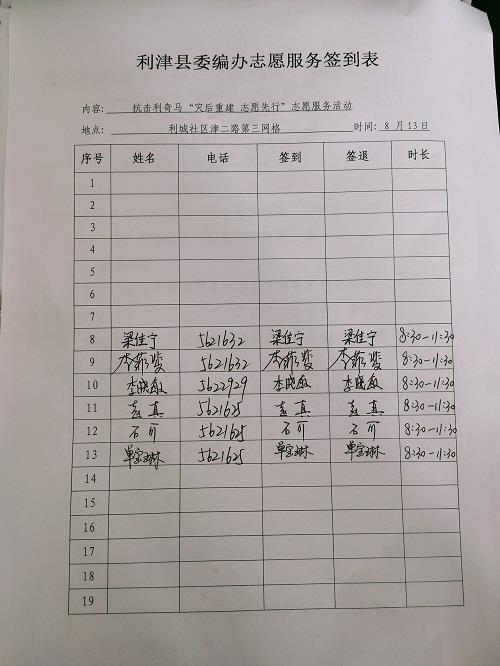 利津县委编办志愿服务签到表
内容: 抗击利奇马“灾后重建 志愿先行”志愿服务活动
地点: 利城社区津二路第三网格 时间: 8 月 13 日
序号 姓名 电话 签到 签退 时长
1
2
3
4
5
6
7
8 梁佳宁 5621632 梁佳宁 梁佳宁 8:30-11:30
9 5621632 8:30-11:30
10 李晓敏 5622929 李晓敏 李晓敏 8:30-11:30
11 袁真 5621625 袁真 袁真 8:30-11:30
12 石可 5621625 石可 石可 8:30-11:30
13 单宝琳 5621625 单宝琳 单宝琳 8:30-11:30
14
15
16
17
18
19